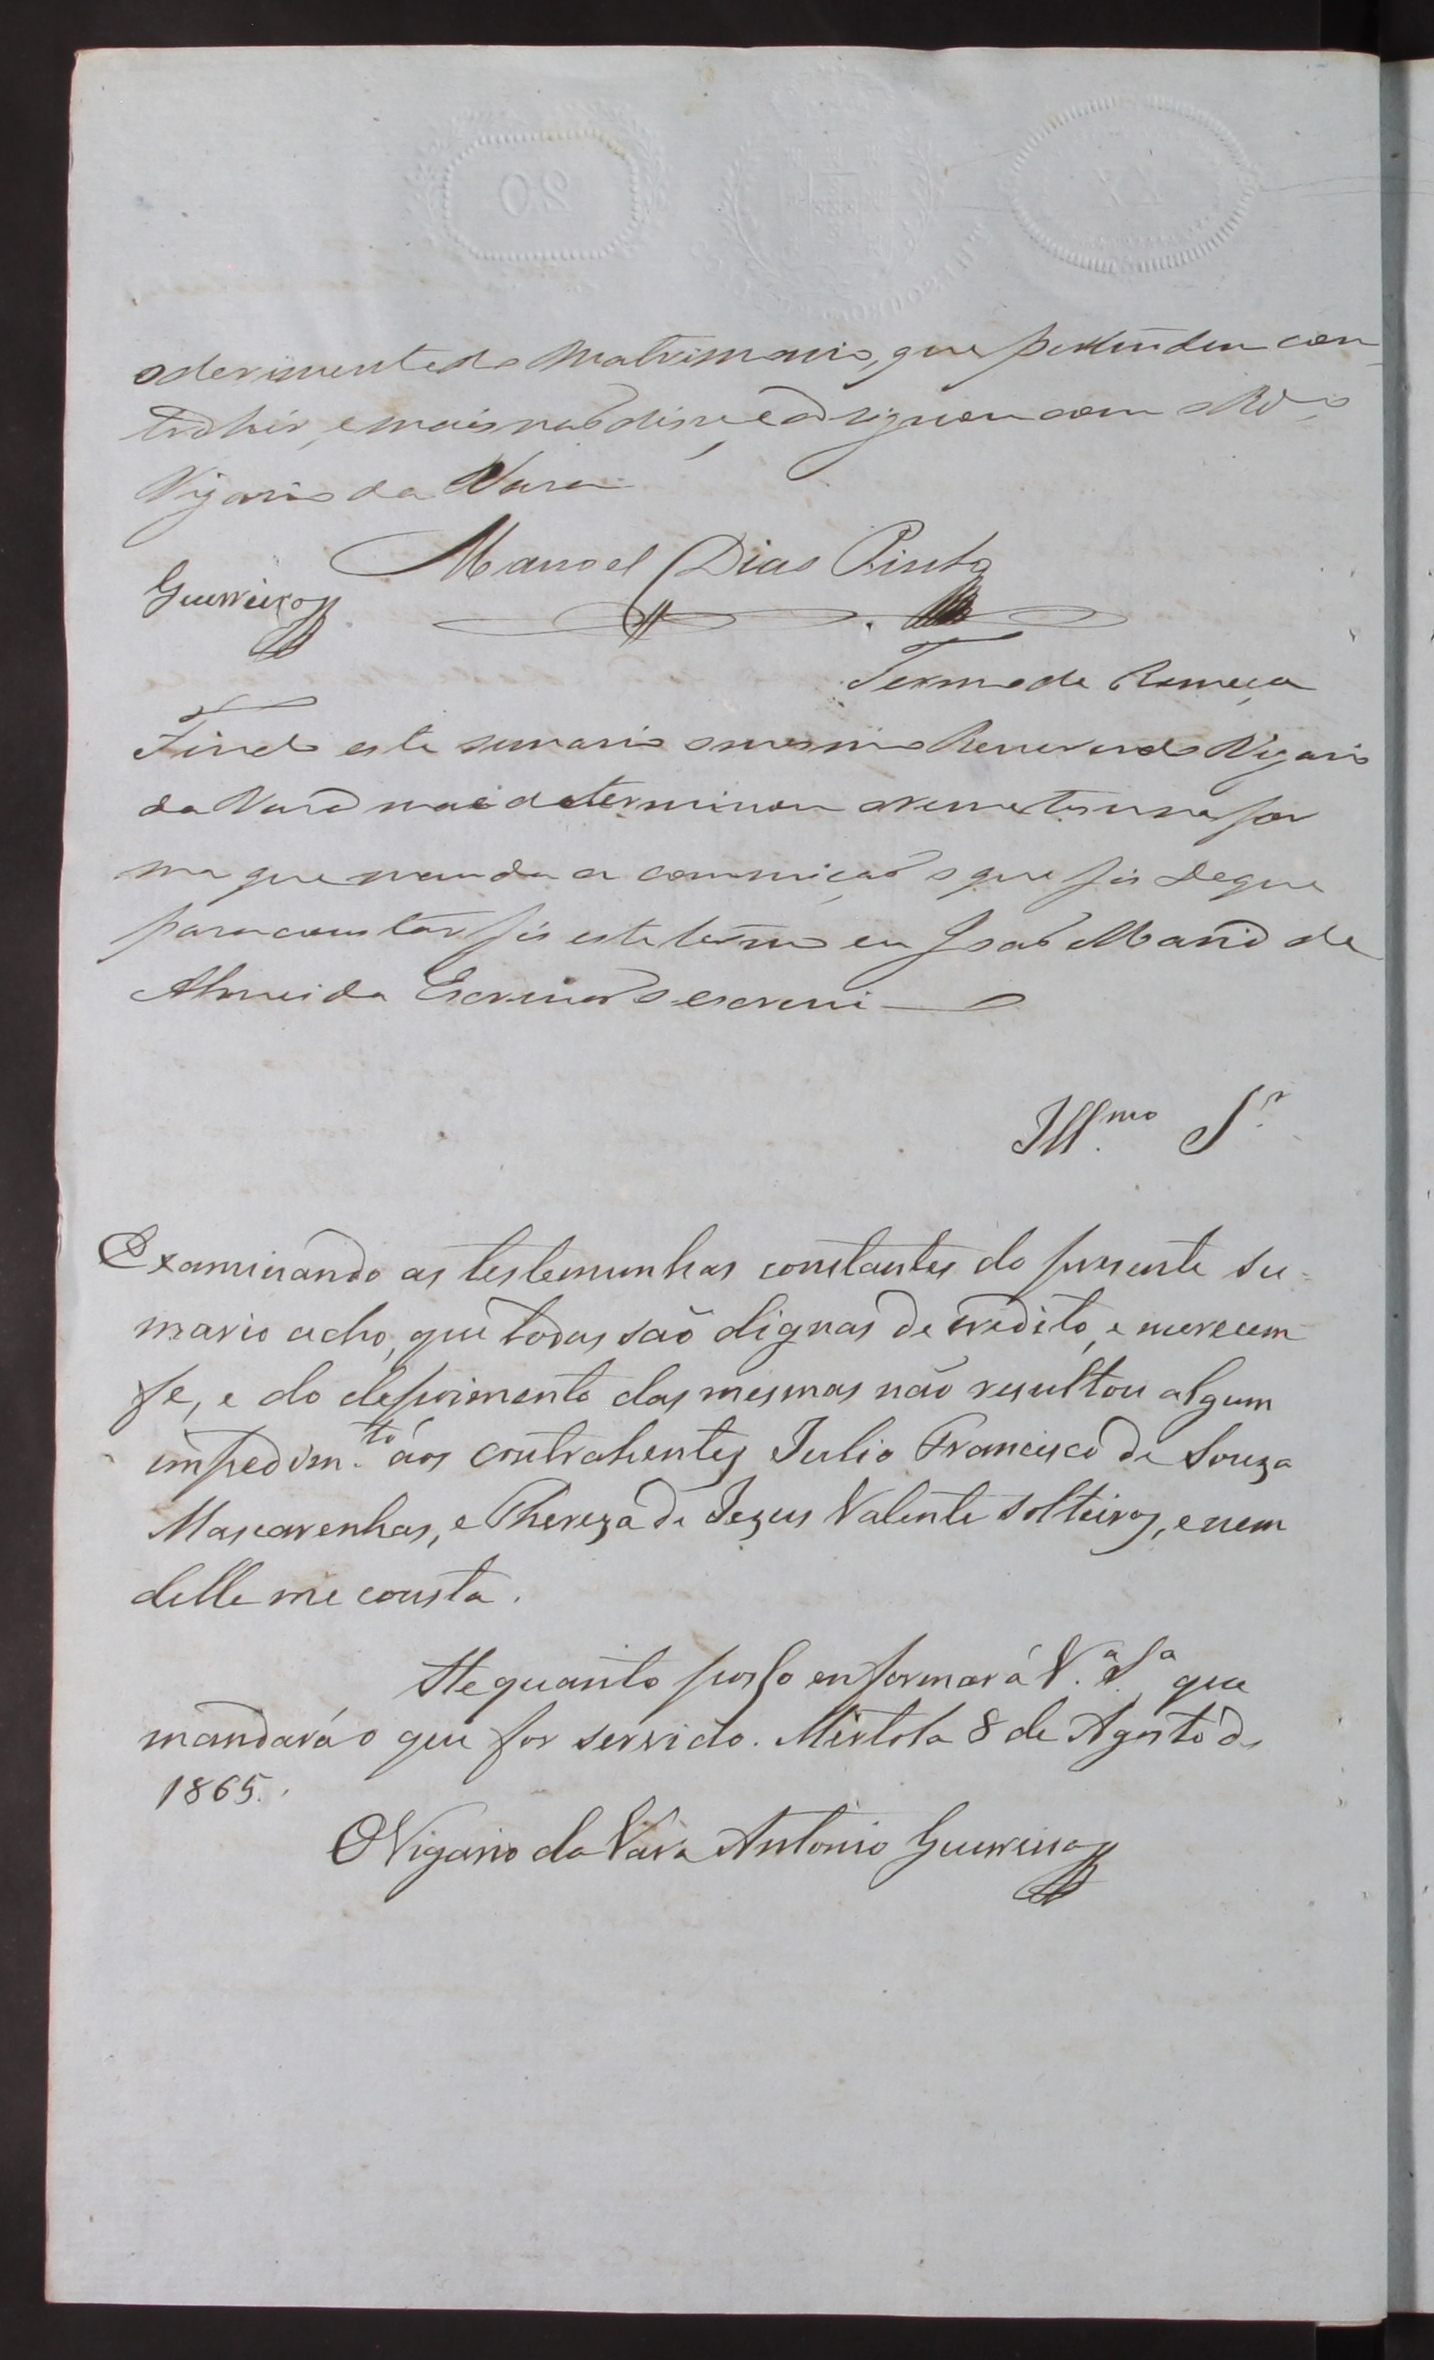 o derimente do Matrimonio, que pertendem con-
trahir, e mais não disse, e asignou com o Rd.º
Vigario da Vara
Manoel Dias Pinto
Guerreiro
Termo de Remeça
Findo este sumario o mesmo Reverendo Vigario
da Vara me determinou o remetese na for
ma que manda a commição o que fis de que
para constar fis este termo eu João Maria de
Almeida Escrivão o escrevi
Ill.mo S.r
Examinando as testemunhas constantes do presente su=
mario acho, que todas são dignas de credito, e merecem
fe, e do depoimento das mesmas não resultou algum
impedim.to áos contrahentes Julio Francisco de Souza
Mascarenhas, e Thereza de Jezus Valente solteiros, e nem
delle me consta.
He quanto posso enformar á V.ª S.ª que
mandará o que for servido. Mertola 8 de Agosto d
1865.
O Vigario da Vara Antonio Guerreiro
20